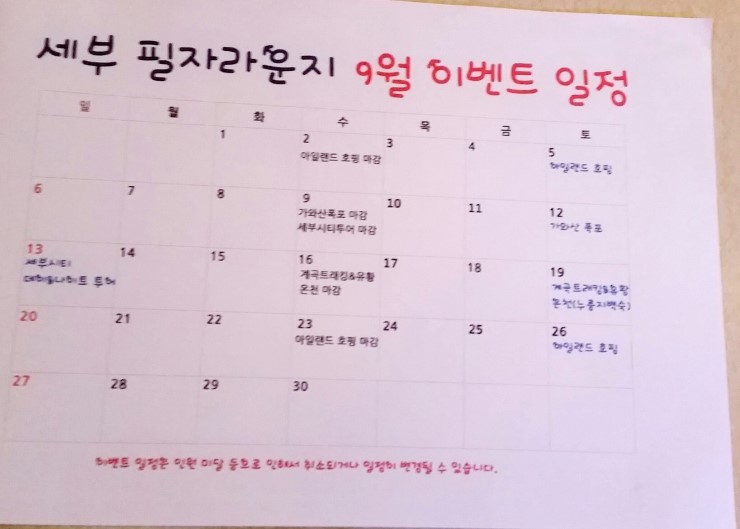 세부 필자라운지 9월 이벤트 일정
일 월 화 수 목 금 토
1 2 3 4 5
아일랜드 호핑 마감
아일랜드 호핑
6 7 8 9 10 11 12
가와산폭포 마감
세부시티투어 마감
가와산 폭포
13 14 15 16 17 18 19
세부시티
데이&나이트 투어
계곡트래킹&유황
온천 마감
계곡트레킹&유황
온천(누룽지백숙)
20 21 22 23 24 25 26
아일랜드 호핑 마감
아일랜드 호핑
27 28 29 30
이벤트 일정은 인원 미달 등으로 인해서 취소되거나 일정이 변경될 수 있습니다.